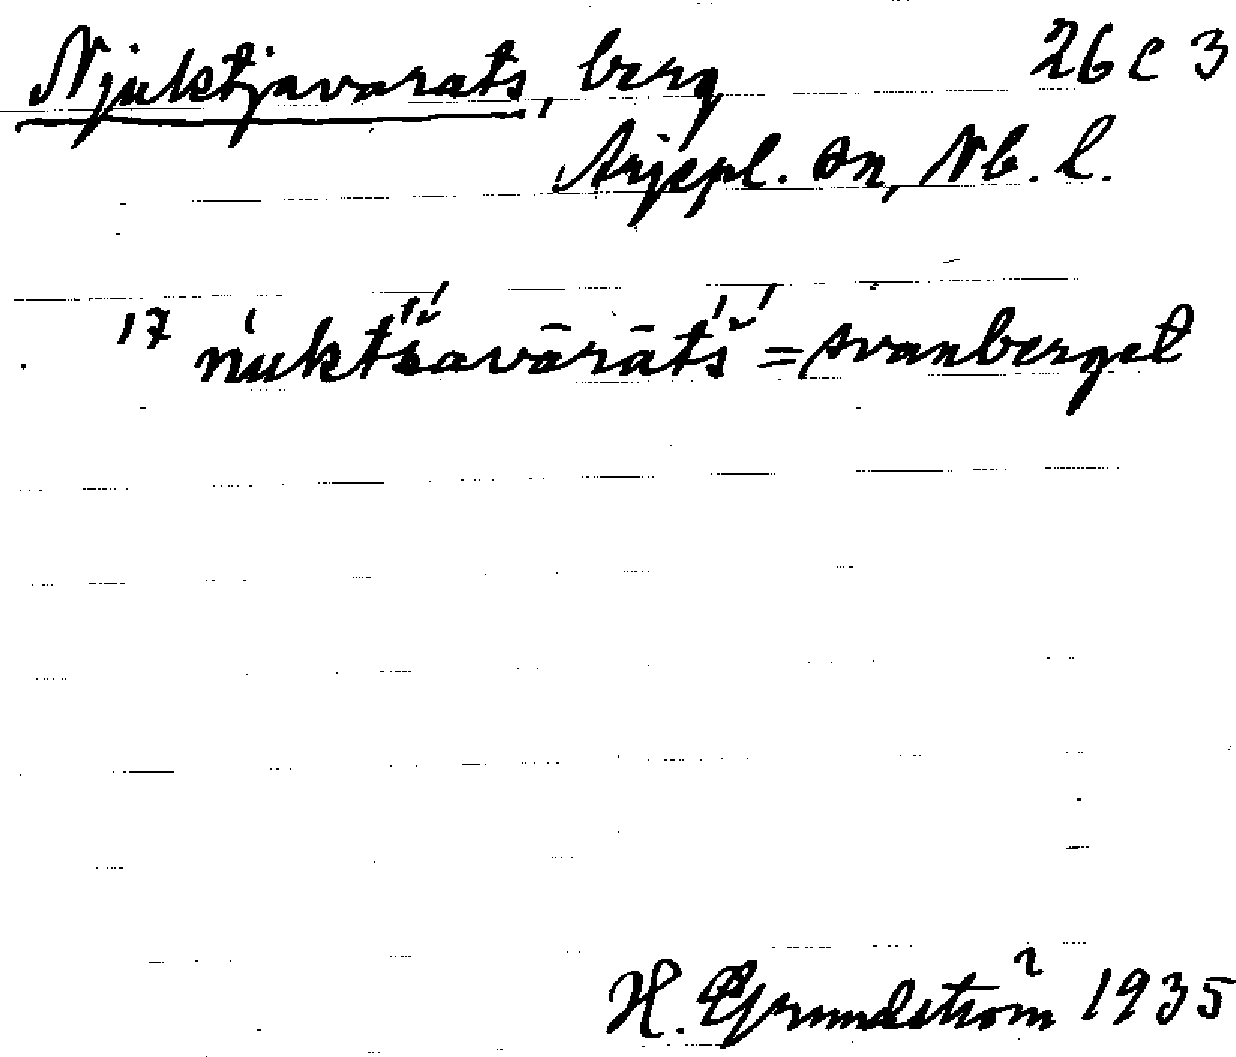 Njuktjavarats, berg 26 C 3
Arjepl. sn, Nb. l.
17 ńuktš́avārātš́ = svanberget
H. Grundström 1935